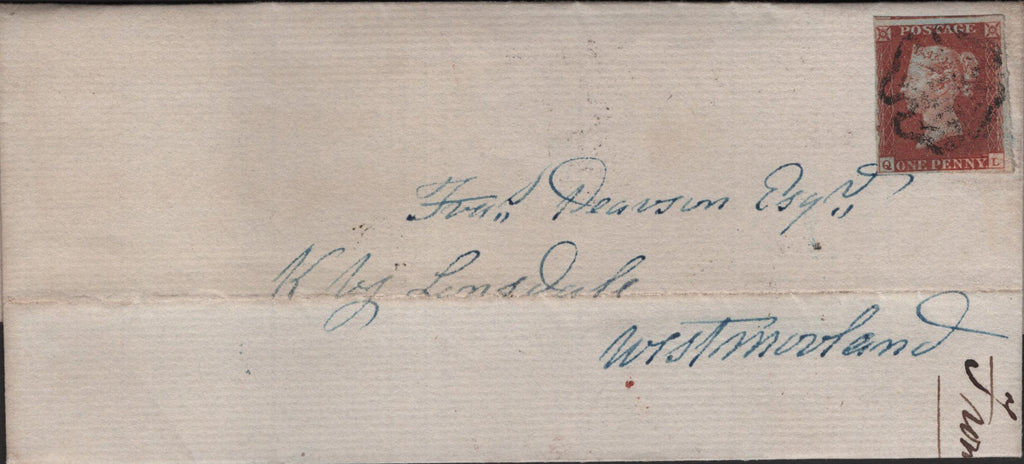 POSTAGE
ONE PENNY
Q L
Fras. Pearson Esqr.
K by Lonsdale
Westmorland